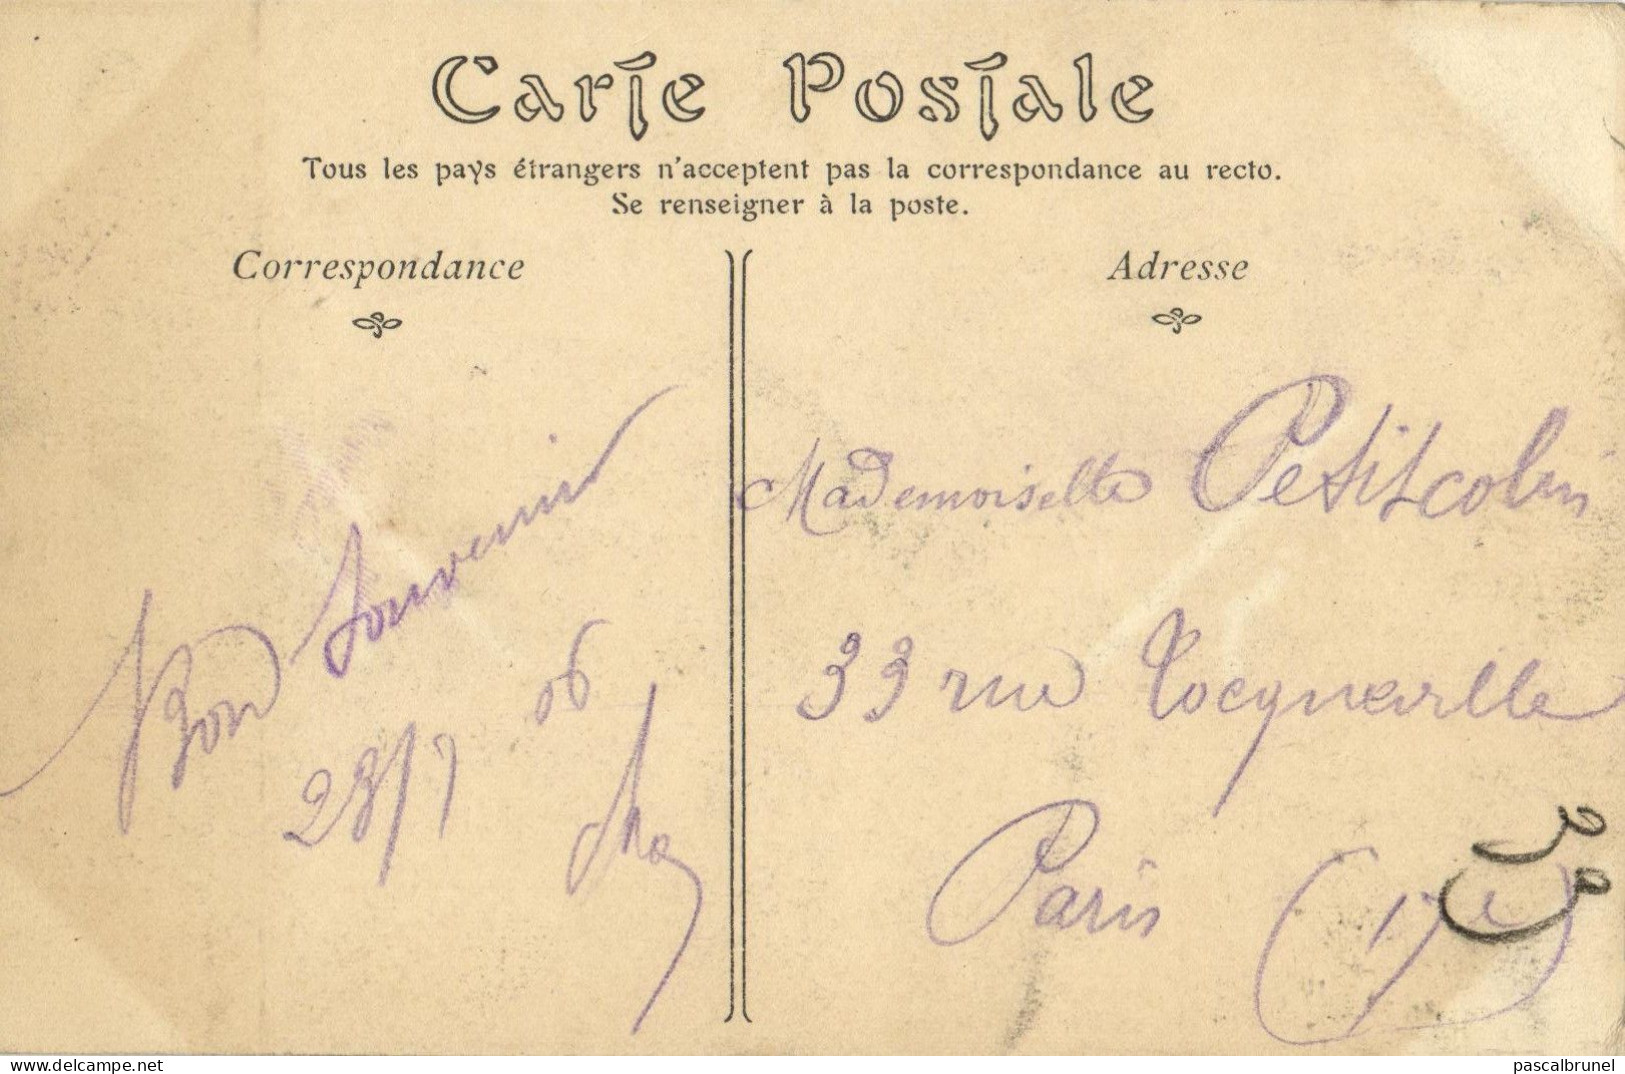 Carte Postale
Tous les pays étrangers n'acceptent pas la correspondance au recto.
Se renseigner à la poste.
Correspondance
Adresse
Bon souvenir
28/7 06
Mademoiselle Petitcolin
33 rue Tocqueville
Paris (17e)
delcampe.net
pascalbrunel